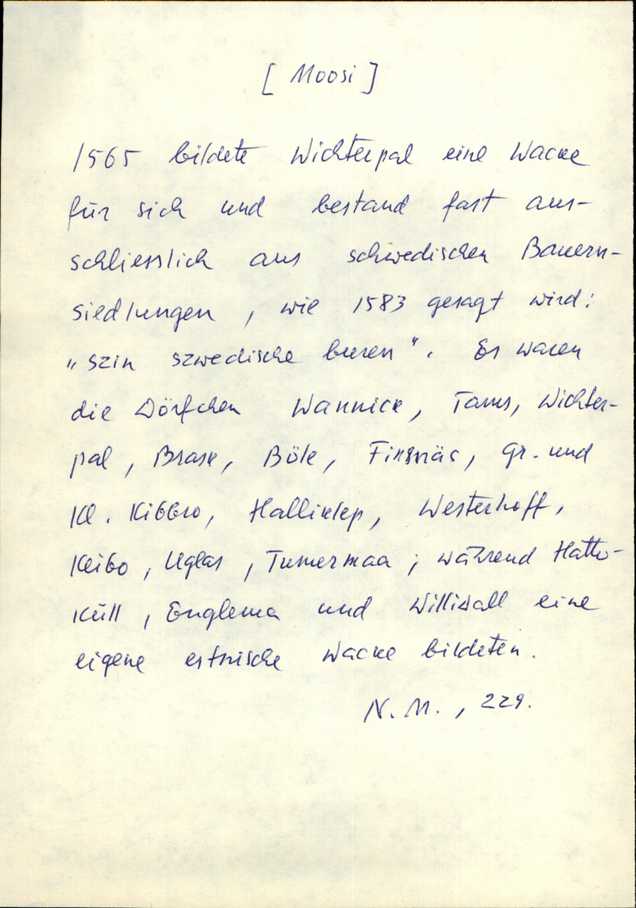 [ Moosi ]
1565 bildete Wichterpal eine Wacke
für sich und bestand fast aus-
schliesslich aus schwedischen Bauern-
siedlungen, wie 1583 gesagt wird:
„szin szwedische buren“. Es waren
die Dörfchen Wannick, Tams, Wichter-
pal, Brase, Böle, Gr. und
Kl. Kibbro, Halliklep, Westerhoff,
Keibo, Uglas, Tumermaa; während Hatto-
küll, Englema und Williwall eine
eigene estnische Wacke bildeten.
N.M., 229.